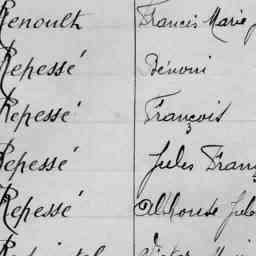 Renoult Francis Marie
Repessé Bénoni
Repessé François
Repessé Jules Franç
Repessé Alphonse Jul